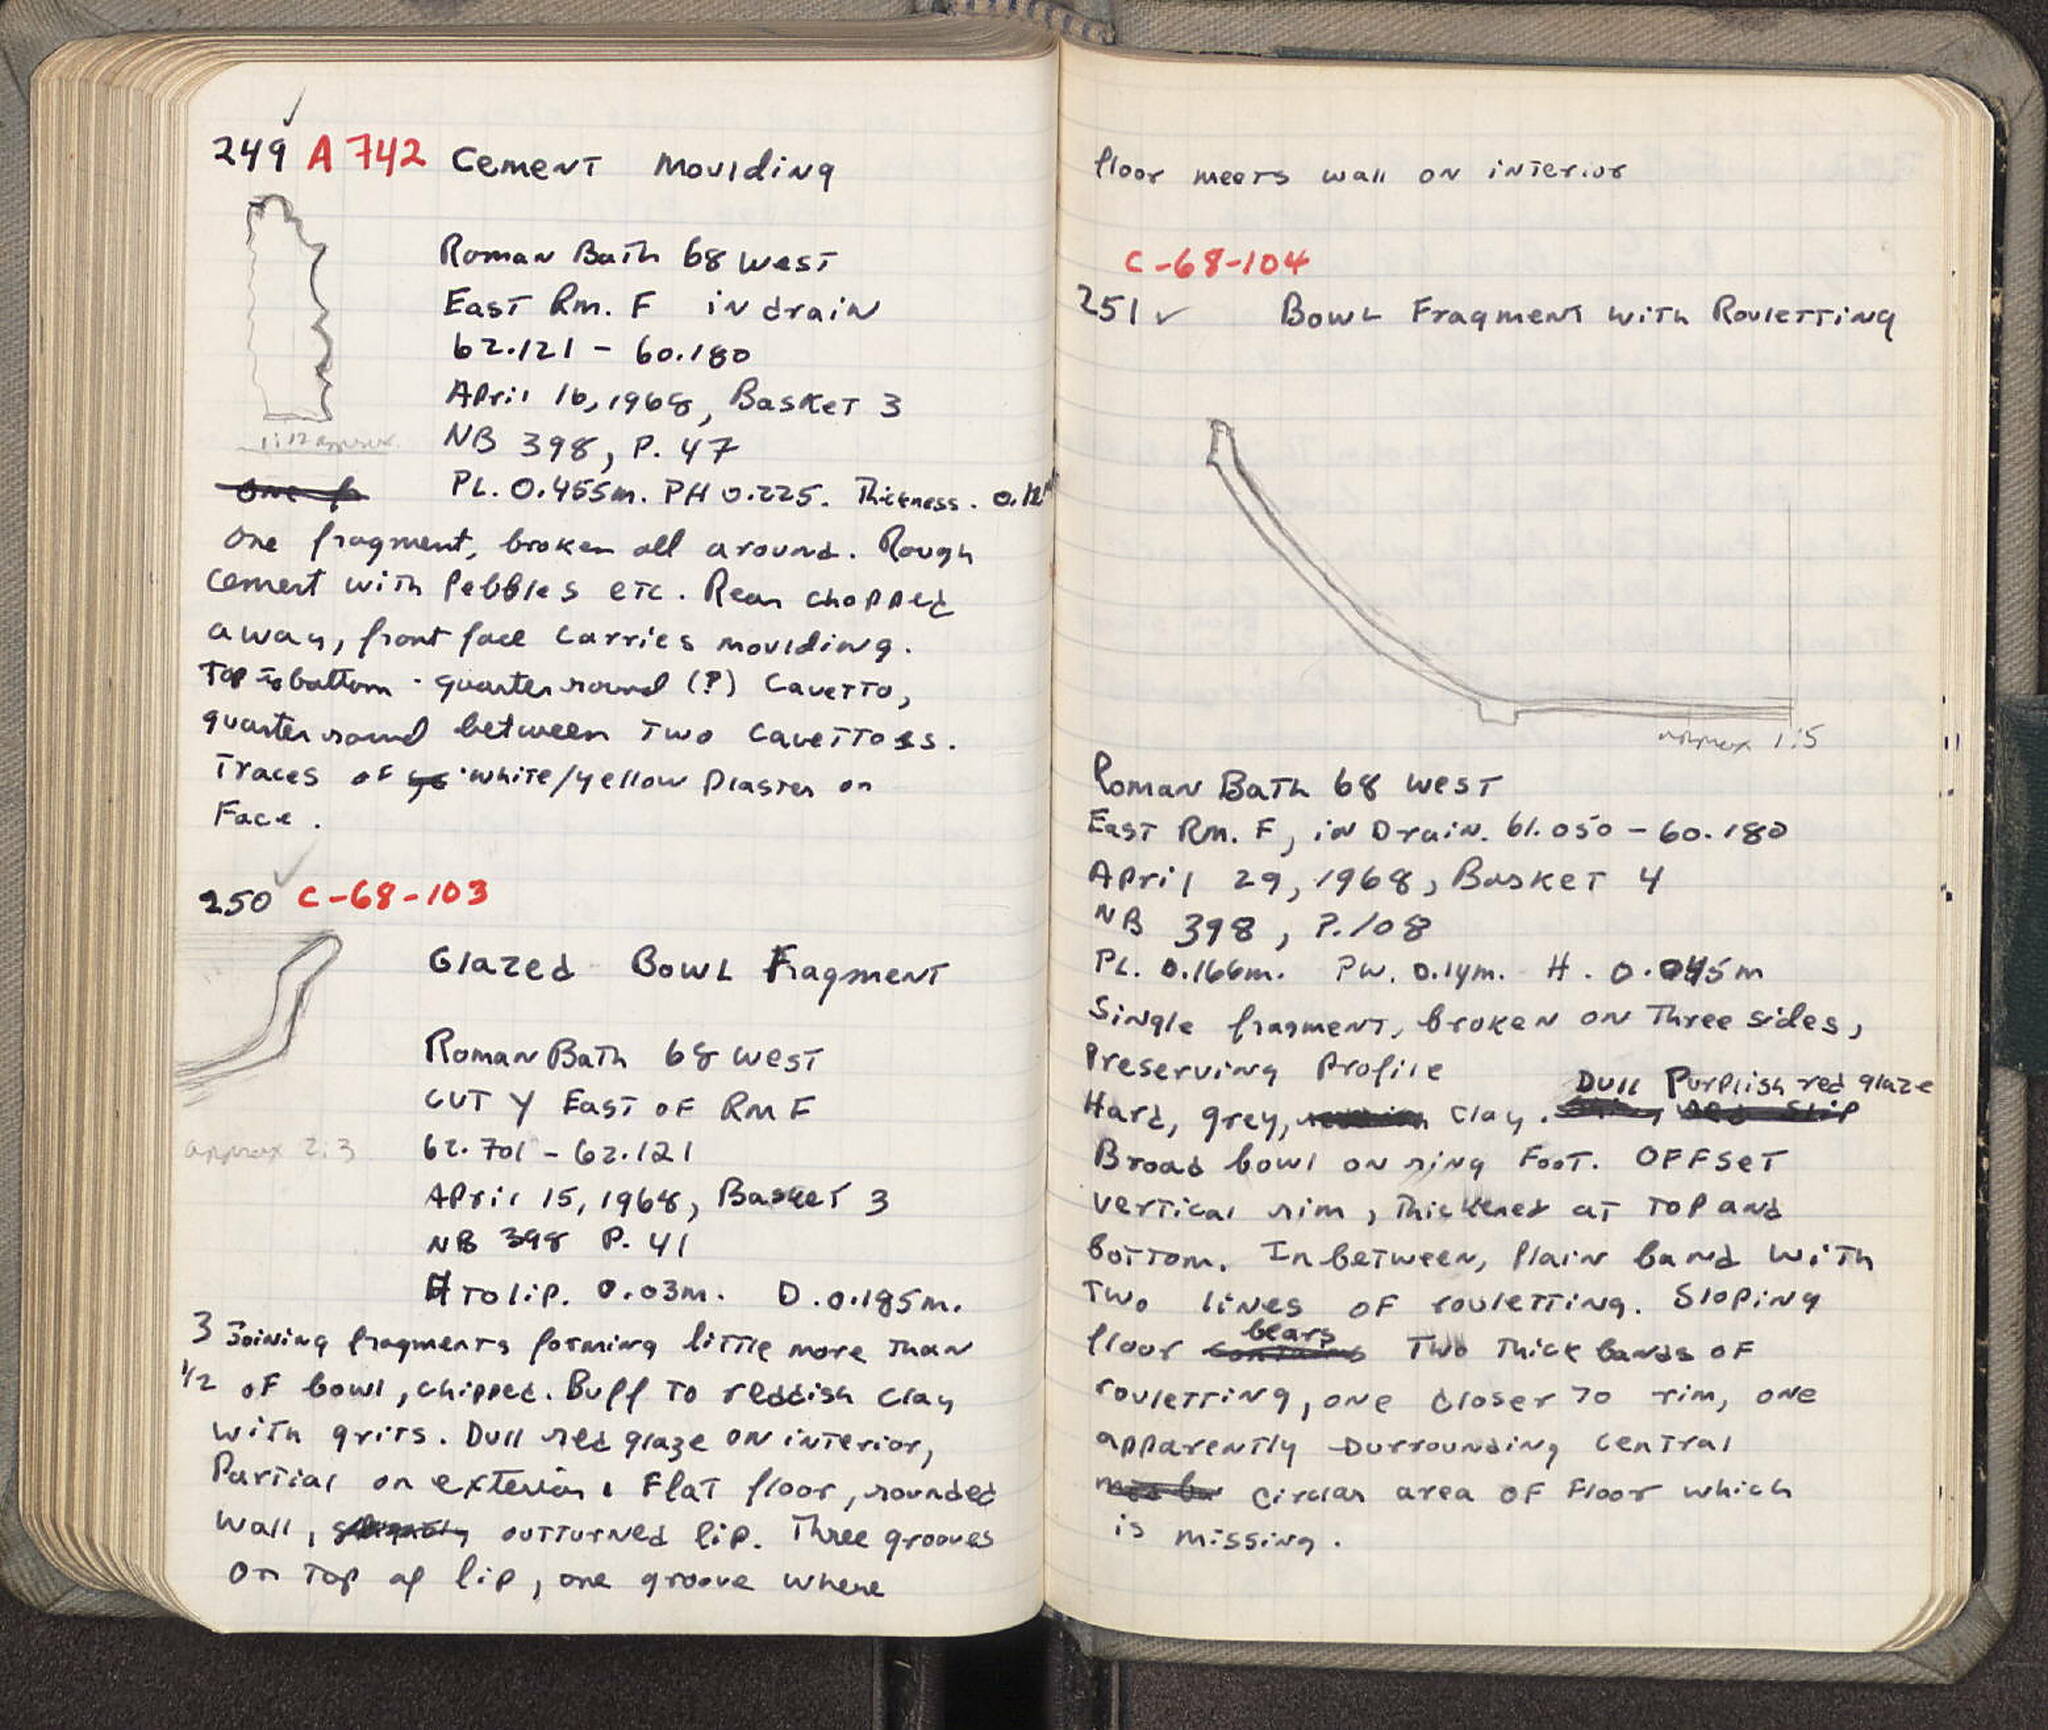 249 A 742 Cement Moulding
Roman Bath 68 West
East Rm. F in drain
62.121 - 60.180
April 16, 1968, Basket 3
1:12 approx.
NB 398, P. 47
One f
PL. 0.455m. PH 0.225. Thickness. 0.12m
One fragment, broken all around. Rough
cement with Pebbles etc. Rear chopped
away, front face carries moulding.
Top to bottom - quarter round (?) Cavetto,
quarter round between two cavettoes.
Traces of ye white/yellow Plaster on
Face.
250 C-68-103
Glazed Bowl Fragment
Roman Bath 68 West
CUT Y East of Rm F
62.701 - 62.121
approx 2:3
April 15, 1968, Basket 3
NB 398 P. 41
H to lip. 0.03m. D. 0.185m.
3 Joining fragments forming little more than
1/2 of bowl, chipped. Buff to reddish clay
with grits. Dull red glaze on interior,
Partial on exterior. Flat floor, rounded
wall, slightly outturned lip. Three grooves
on top of lip, one groove where
floor meets wall on interior
C-68-104
251 ✓ Bowl Fragment with Rouletting
approx 1:5
Roman Bath 68 West
East Rm. F, in Drain. 61.050 - 60.180
April 29, 1968, Basket 4
NB 398, P. 108
PL. 0.166m. PW. 0.14m. H. 0.045m
Single fragment, broken on Three sides,
Preserving Profile
Dull Purplish red glaze
Hard, grey, clay. red slip
Broad bowl on ring Foot. Offset
vertical rim, Thickened at top and
bottom. In between, Plain band with
two lines of rouletting. Sloping
bears
floor contains Two Thick bands of
rouletting, one closer to rim, one
apparently surrounding central
circular area of Floor which
is missing.